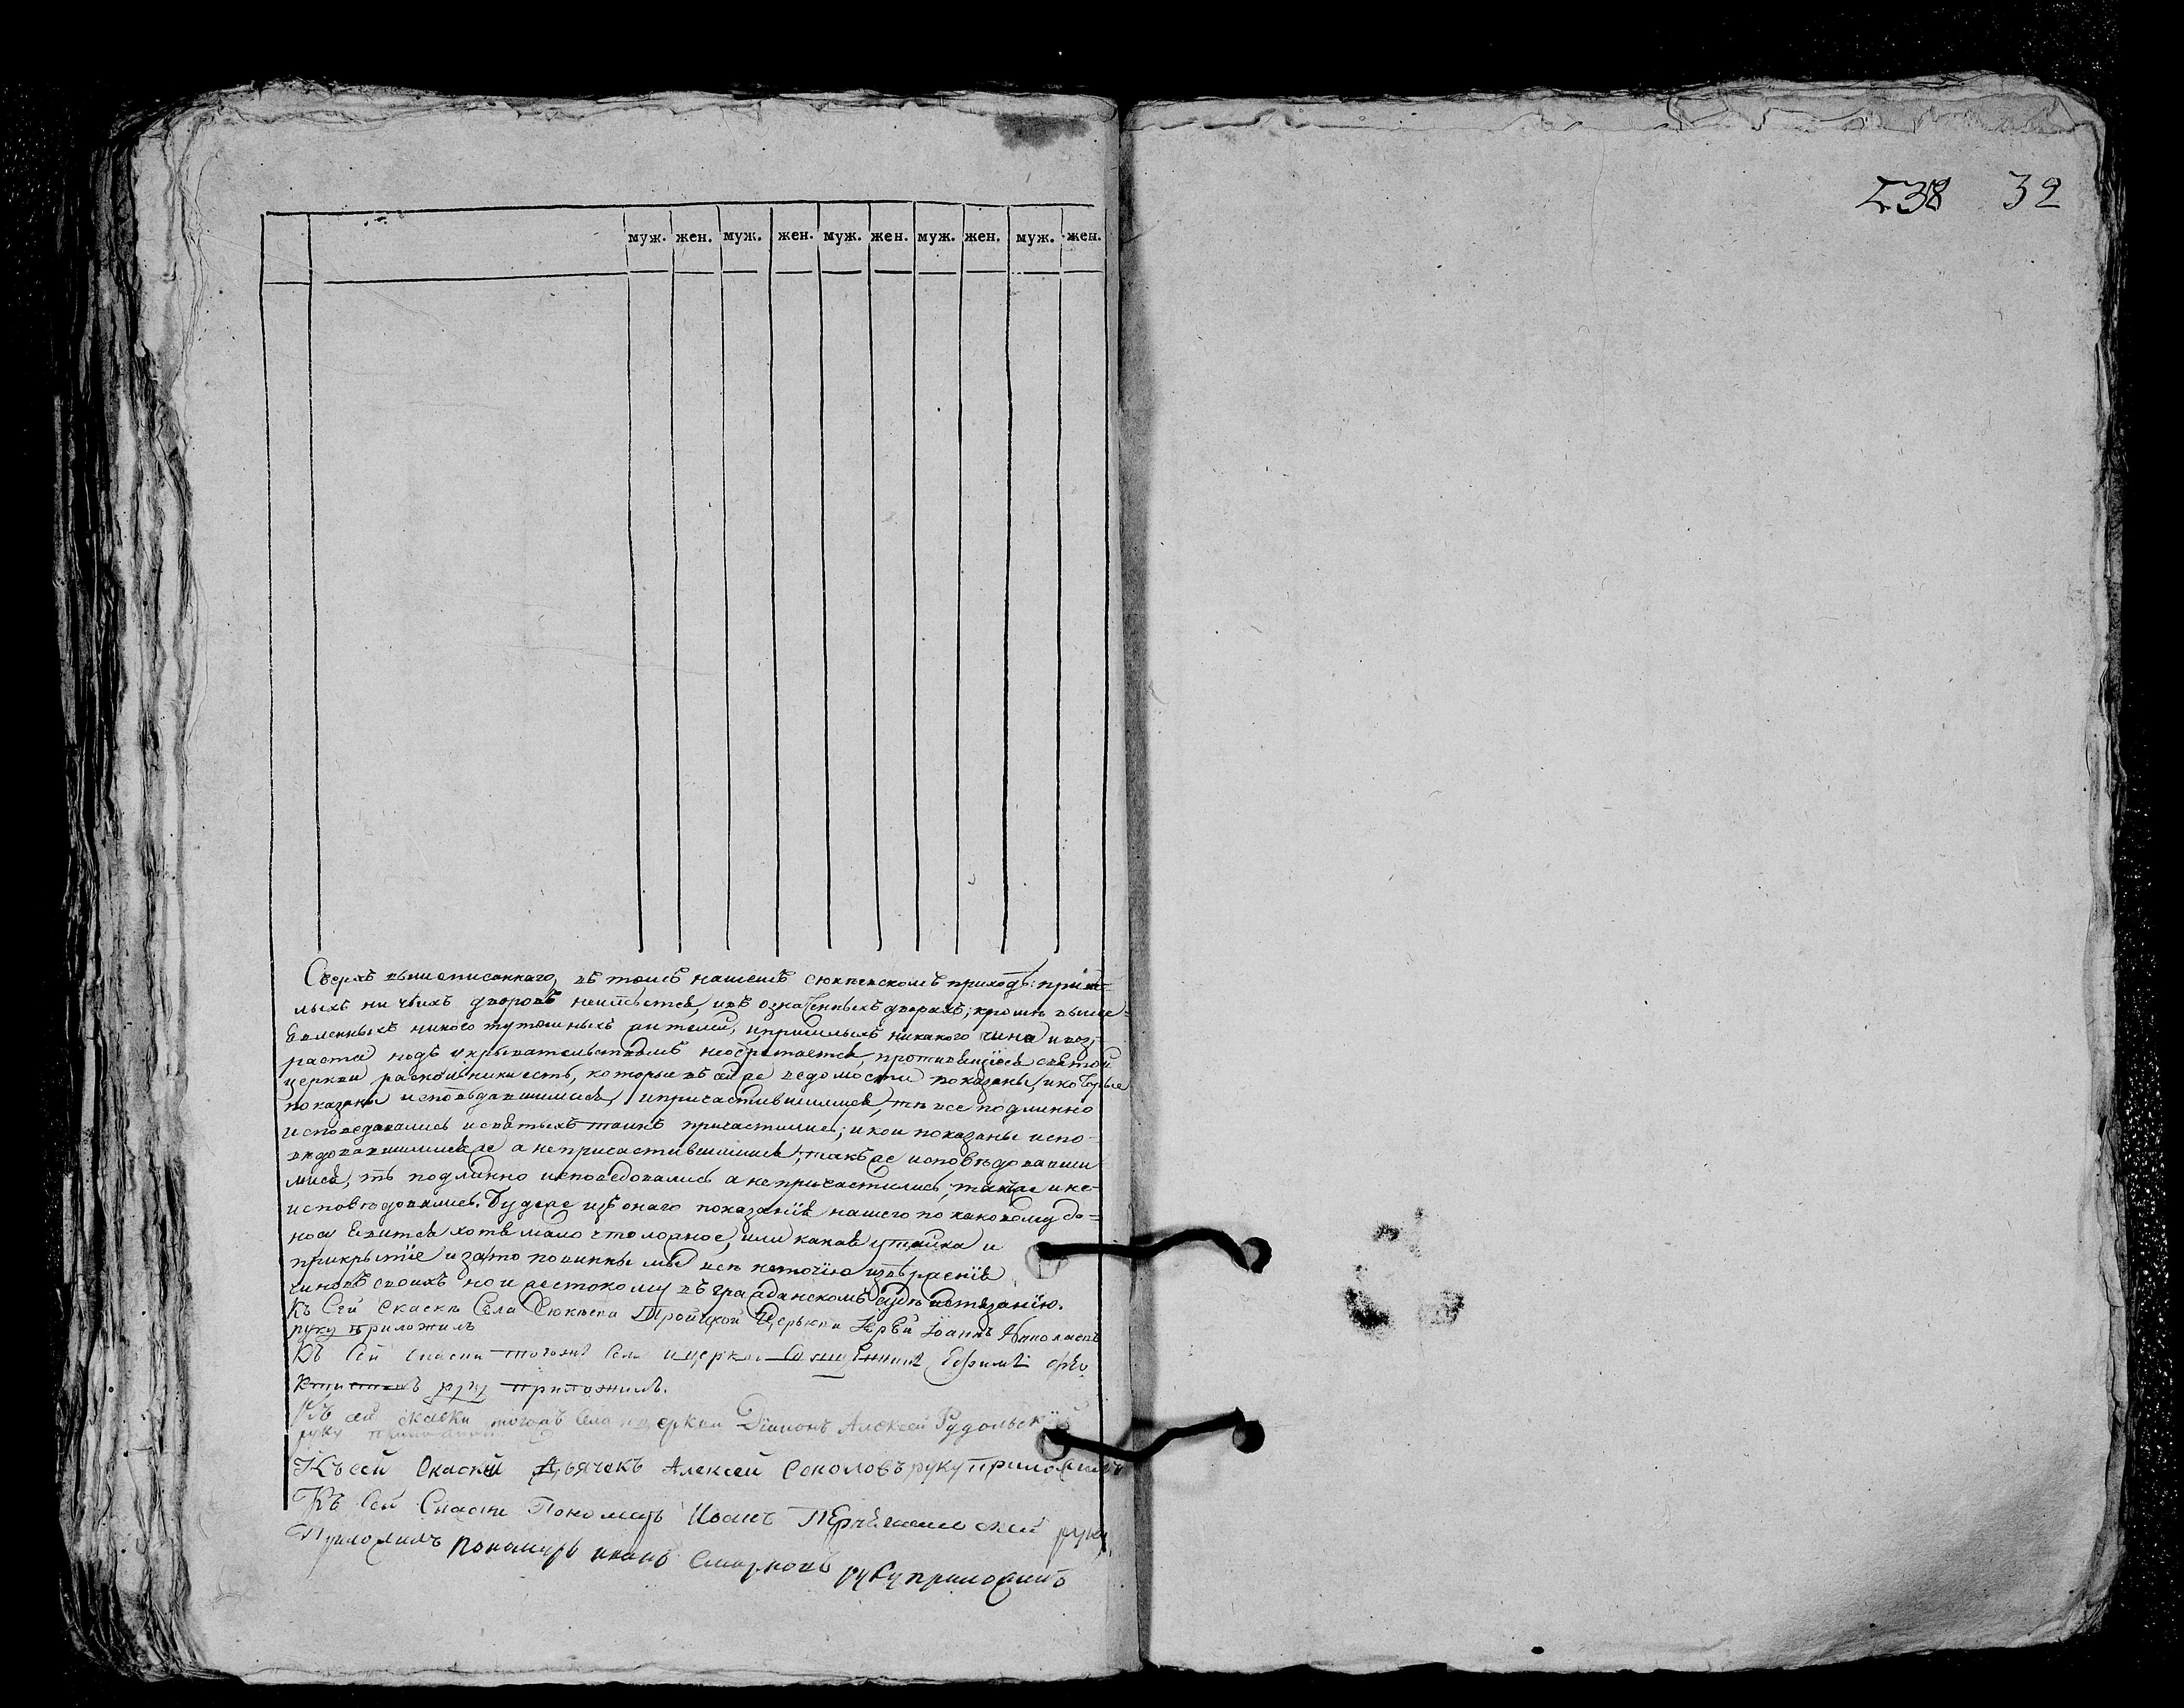 238 32
муж. жен. муж. жен. муж. жен. муж. жен. муж. жен.
Сверхъ вышеписаннаго, въ томъ нашемъ сюкѣевскомъ приходѣ: приш-
лыхъ ни чьихъ дворовъ неимѣется, ивъ означенныхъ дворахъ; кромѣ выше-
явленныхъ никого тутошныхъ жителей, ипришлыхъ никакого чина и воз-
раста подъ укрывательствомъ необретается, противящіеся святой
церкви раскольники есть, которые въ сей же ведомости показаны, и которые
показаны исповѣдавшимися, ипричастившимися, тѣ все подлинно
исповедавались исвятыхъ таинъ причастились; и кои показаны испо-
вѣдовавшимися же а непричастившимися, также исповѣдовавши-
мися, тѣ подлинно исповедовались а не причастились, также и не-
исповѣдовались. Буде же изъ онаго показанія нашего по каковому до-
носу явится хотя мало что ложное, или какая утайка и
прикрытіе и зато повинны мы все неточію изверженія
чиновъ своихъ но и жестокому въ гражданскомъ судѣ истязанію.
Къ Сей Скаскѣ Села Сюкѣева Троицкой Церькви Іерей Іоаннъ Николаевъ
руку приложилъ
Къ Сей Скаски тогожъ Села и церкви Священникъ Ефимъ Фео-
ктистовъ руку приложилъ.
Къ сей скаски тогожъ Села и церкви Діаконъ Алексей Рудольскій
руку приложилъ
Къ сей Скаски Дьячекъ Алексей Соколовъ руку приложилъ
Къ Сей Скаски Пономарь Иванъ руку
Приложилъ Понамарь иванъ Смирновъ руку приложилъ